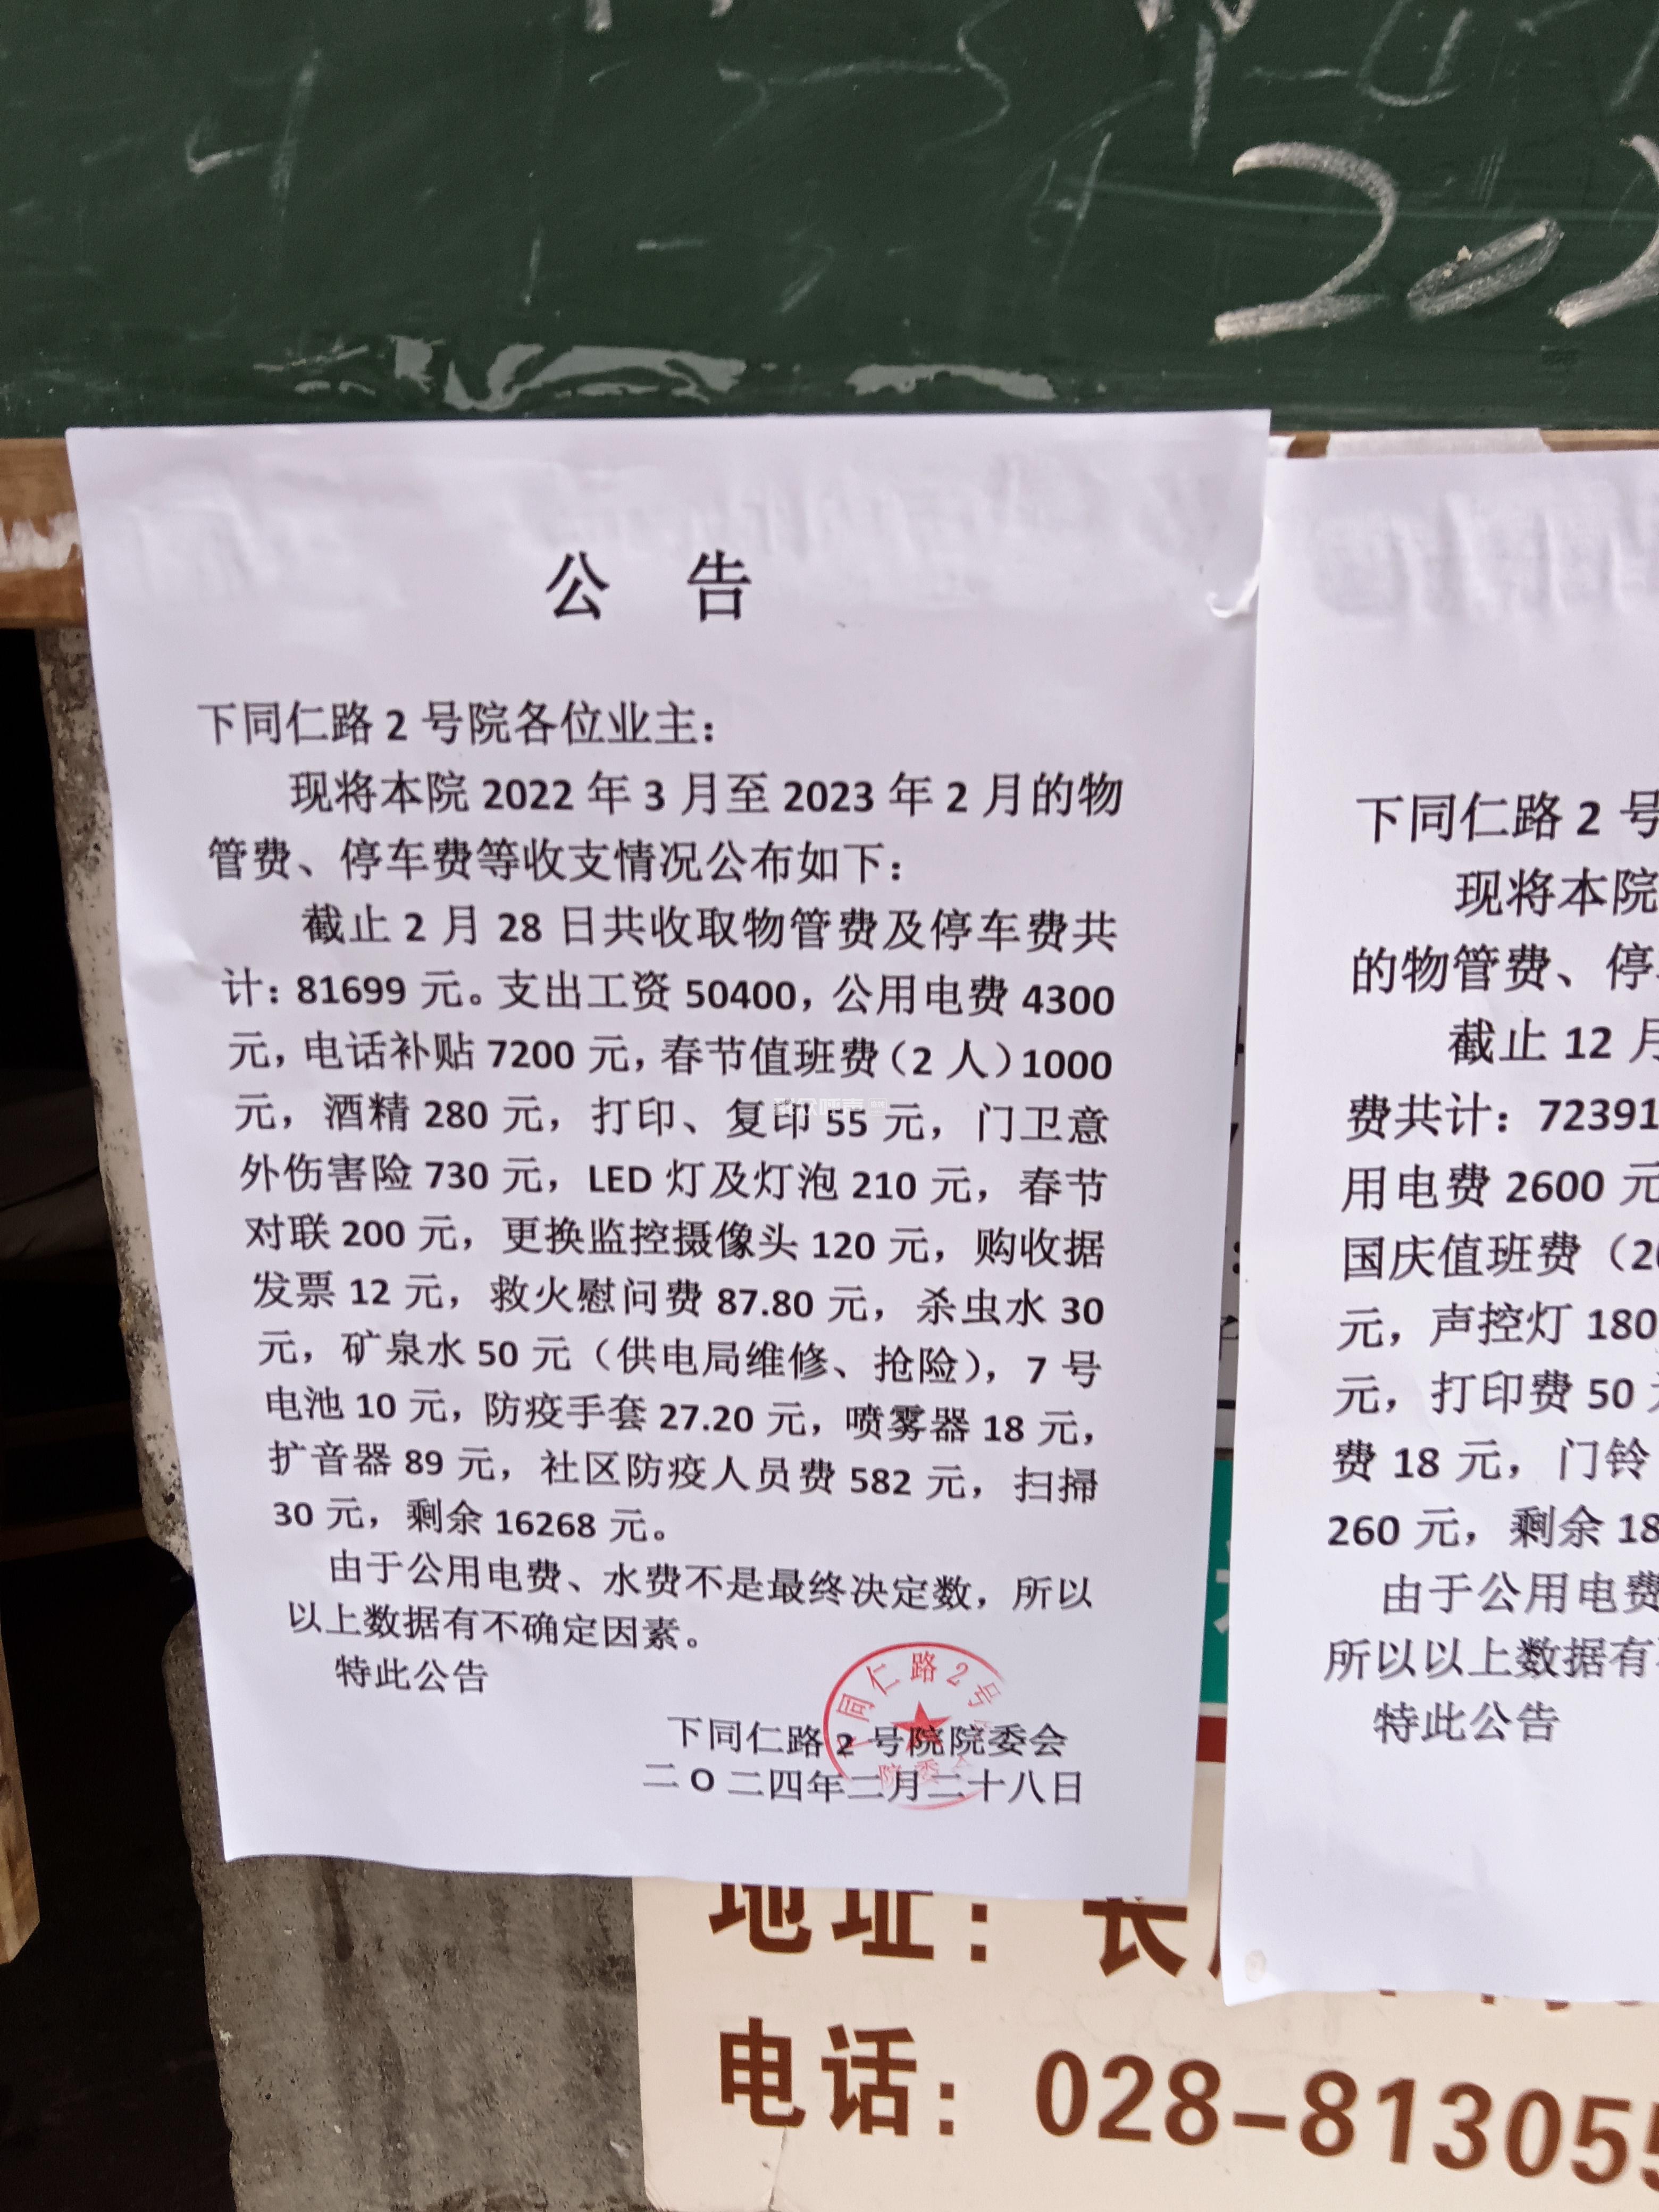 202
公 告
下同仁路 2 号院各位业主：
现将本院 2022 年 3 月至 2023 年 2 月的物
管费、停车费等收支情况公布如下：
截止 2 月 28 日共收取物管费及停车费共
计：81699 元。支出工资 50400，公用电费 4300
元，电话补贴 7200 元，春节值班费（2 人）1000
元，酒精 280 元，打印、复印 55 元，门卫意
外伤害险 730 元，LED 灯及灯泡 210 元，春节
对联 200 元，更换监控摄像头 120 元，购收据
发票 12 元，救火慰问费 87.80 元，杀虫水 30
元，矿泉水 50 元（供电局维修、抢险），7 号
电池 10 元，防疫手套 27.20 元，喷雾器 18 元，
扩音器 89 元，社区防疫人员费 582 元，扫掃
30 元，剩余 16268 元。
由于公用电费、水费不是最终决定数，所以
以上数据有不确定因素。
特此公告
下同仁路 2 号院院委会
二 O 二四年二月二十八日
同仁路2号
院委
群众呼声
下同仁路 2 号
现将本院
的物管费、停
截止 12 月
费共计：72391
用电费 2600 元
国庆值班费（20
元，声控灯 180
元，打印费 50
费 18 元，门铃
260 元，剩余 18
由于公用电费
所以以上数据有
特此公告
地址：长
电话：028-813055